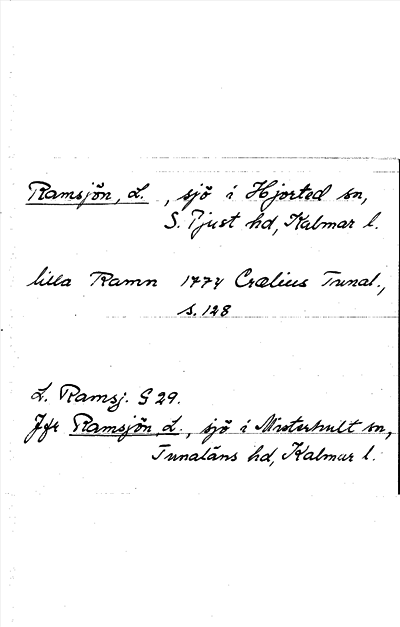 Ramsjön, L. , sjö i Hjorted sn,
S. Tjust hd, Kalmar l.
lilla Ramn 1774 Crælius Tunal.,
s. 128
L. Ramsj. G 29.
Jfr Ramsjön, L. , sjö i Misterhult sn,
Tunaläns hd, Kalmar l.